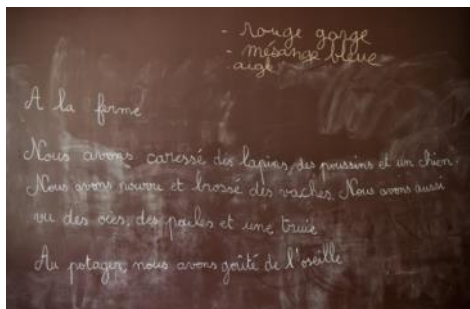 - rouge gorge
- mésange bleue
- aigle
A la ferme
Nous avons caressé des lapins, des poussins et un chien.
Nous avons nourri et brossé des vaches. Nous avons aussi
vu des oies, des poules et une truie.
Au potager, nous avons goûté de l'oseille